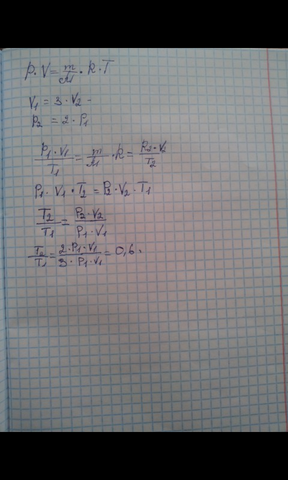 P·V = m/M · R·T
V₁ = 3·V₂
P₂ = 2·P₁
P₁·V₁/T₁ = m/M · R = P₂·V₂/T₂
P₁·V₁·T₂ = P₂·V₂·T₁
T₂/T₁ = P₂·V₂/P₁·V₁
T₂/T₁ = 2·P₁·V₁/3·P₁·V₁ = 0,6